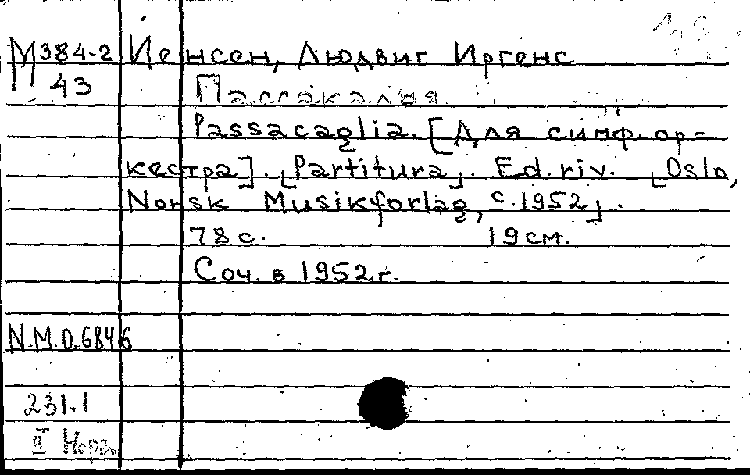 М 384-2 Йенсен, Людвиг Иргенс
43
Пассакалия.
Passacaglia. [Для симф. ор-
кестра]. [Partitura]. Ed. riv. [Oslo,
Norsk Musikforlag, c. 1952].
78 с. 19 см.
Соч. в 1952 г.
N.M.O.6846
231.1
II Норв.